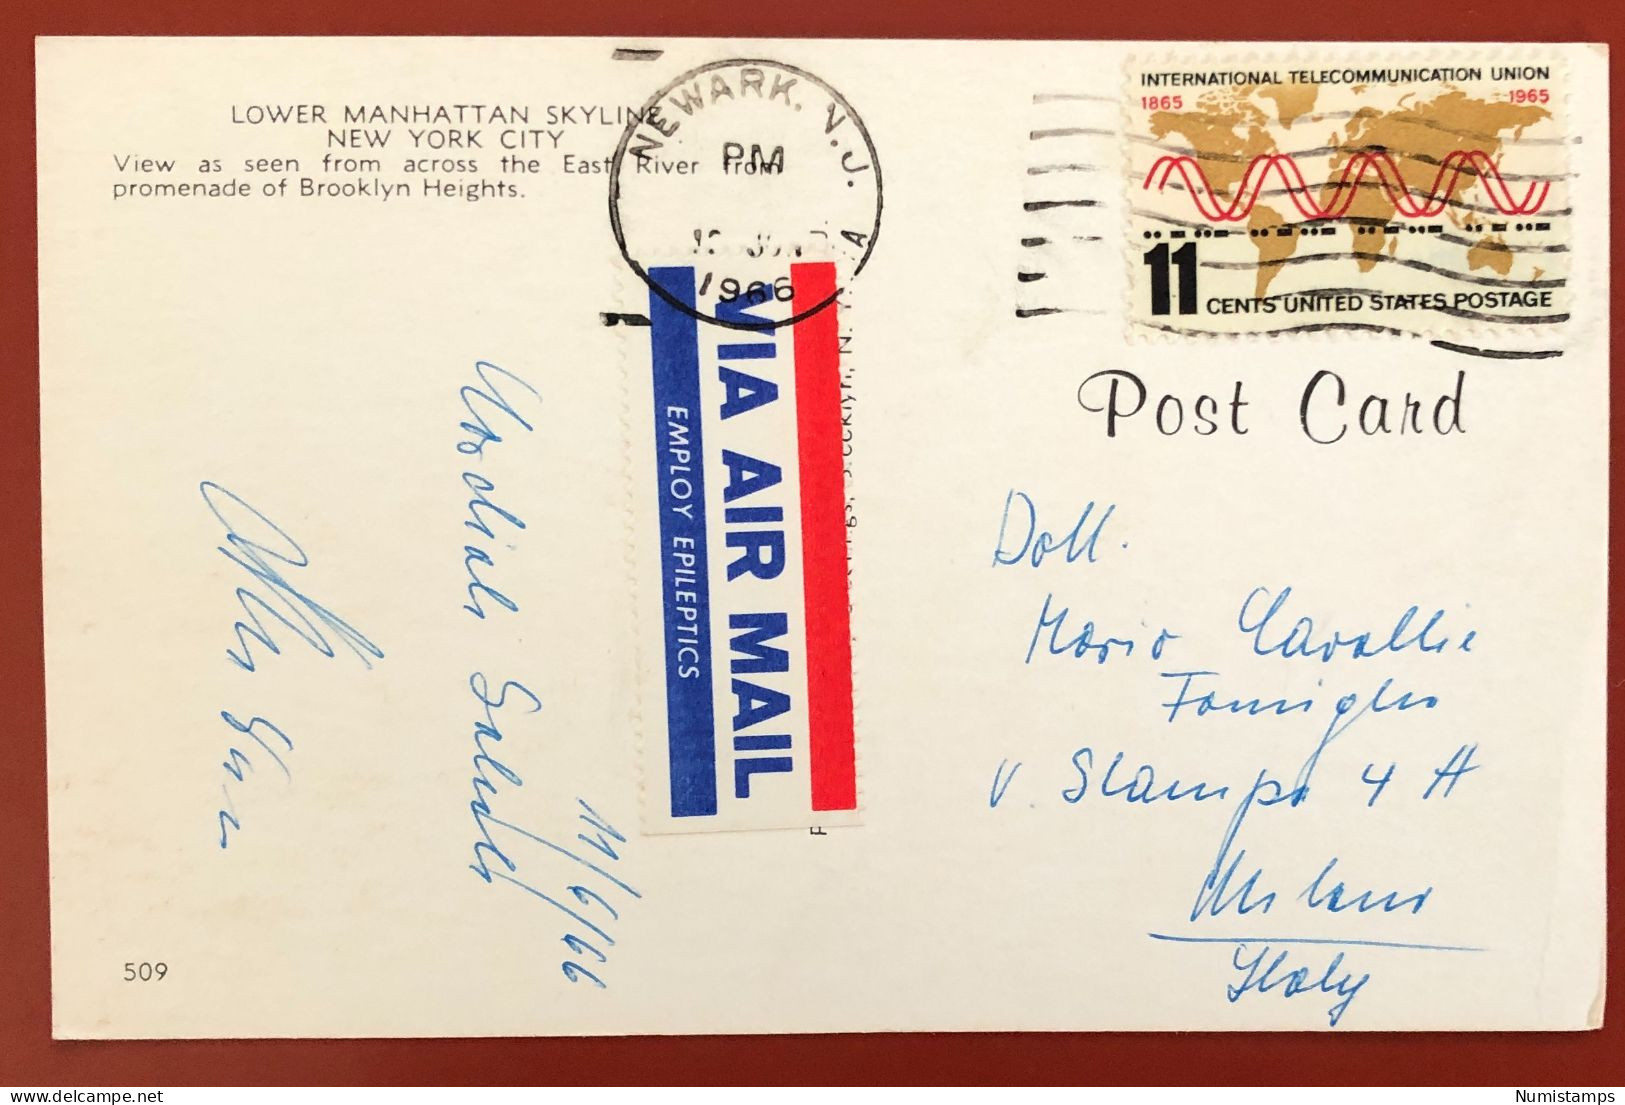 LOWER MANHATTAN SKYLINE
NEW YORK CITY
View as seen from across the East River from
promenade of Brooklyn Heights.
NEWARK, N.J.
PM
1966
INTERNATIONAL TELECOMMUNICATION UNION
1865 1965
11 CENTS UNITED STATES POSTAGE
VIA AIR MAIL
EMPLOY EPILEPTICS
Post Card
Cordiali Saluti
11/6/66
Dott.
Mario Cavallie
Famiglia
V. Stampa 4 A
Milano
Italy
509
Numistamps